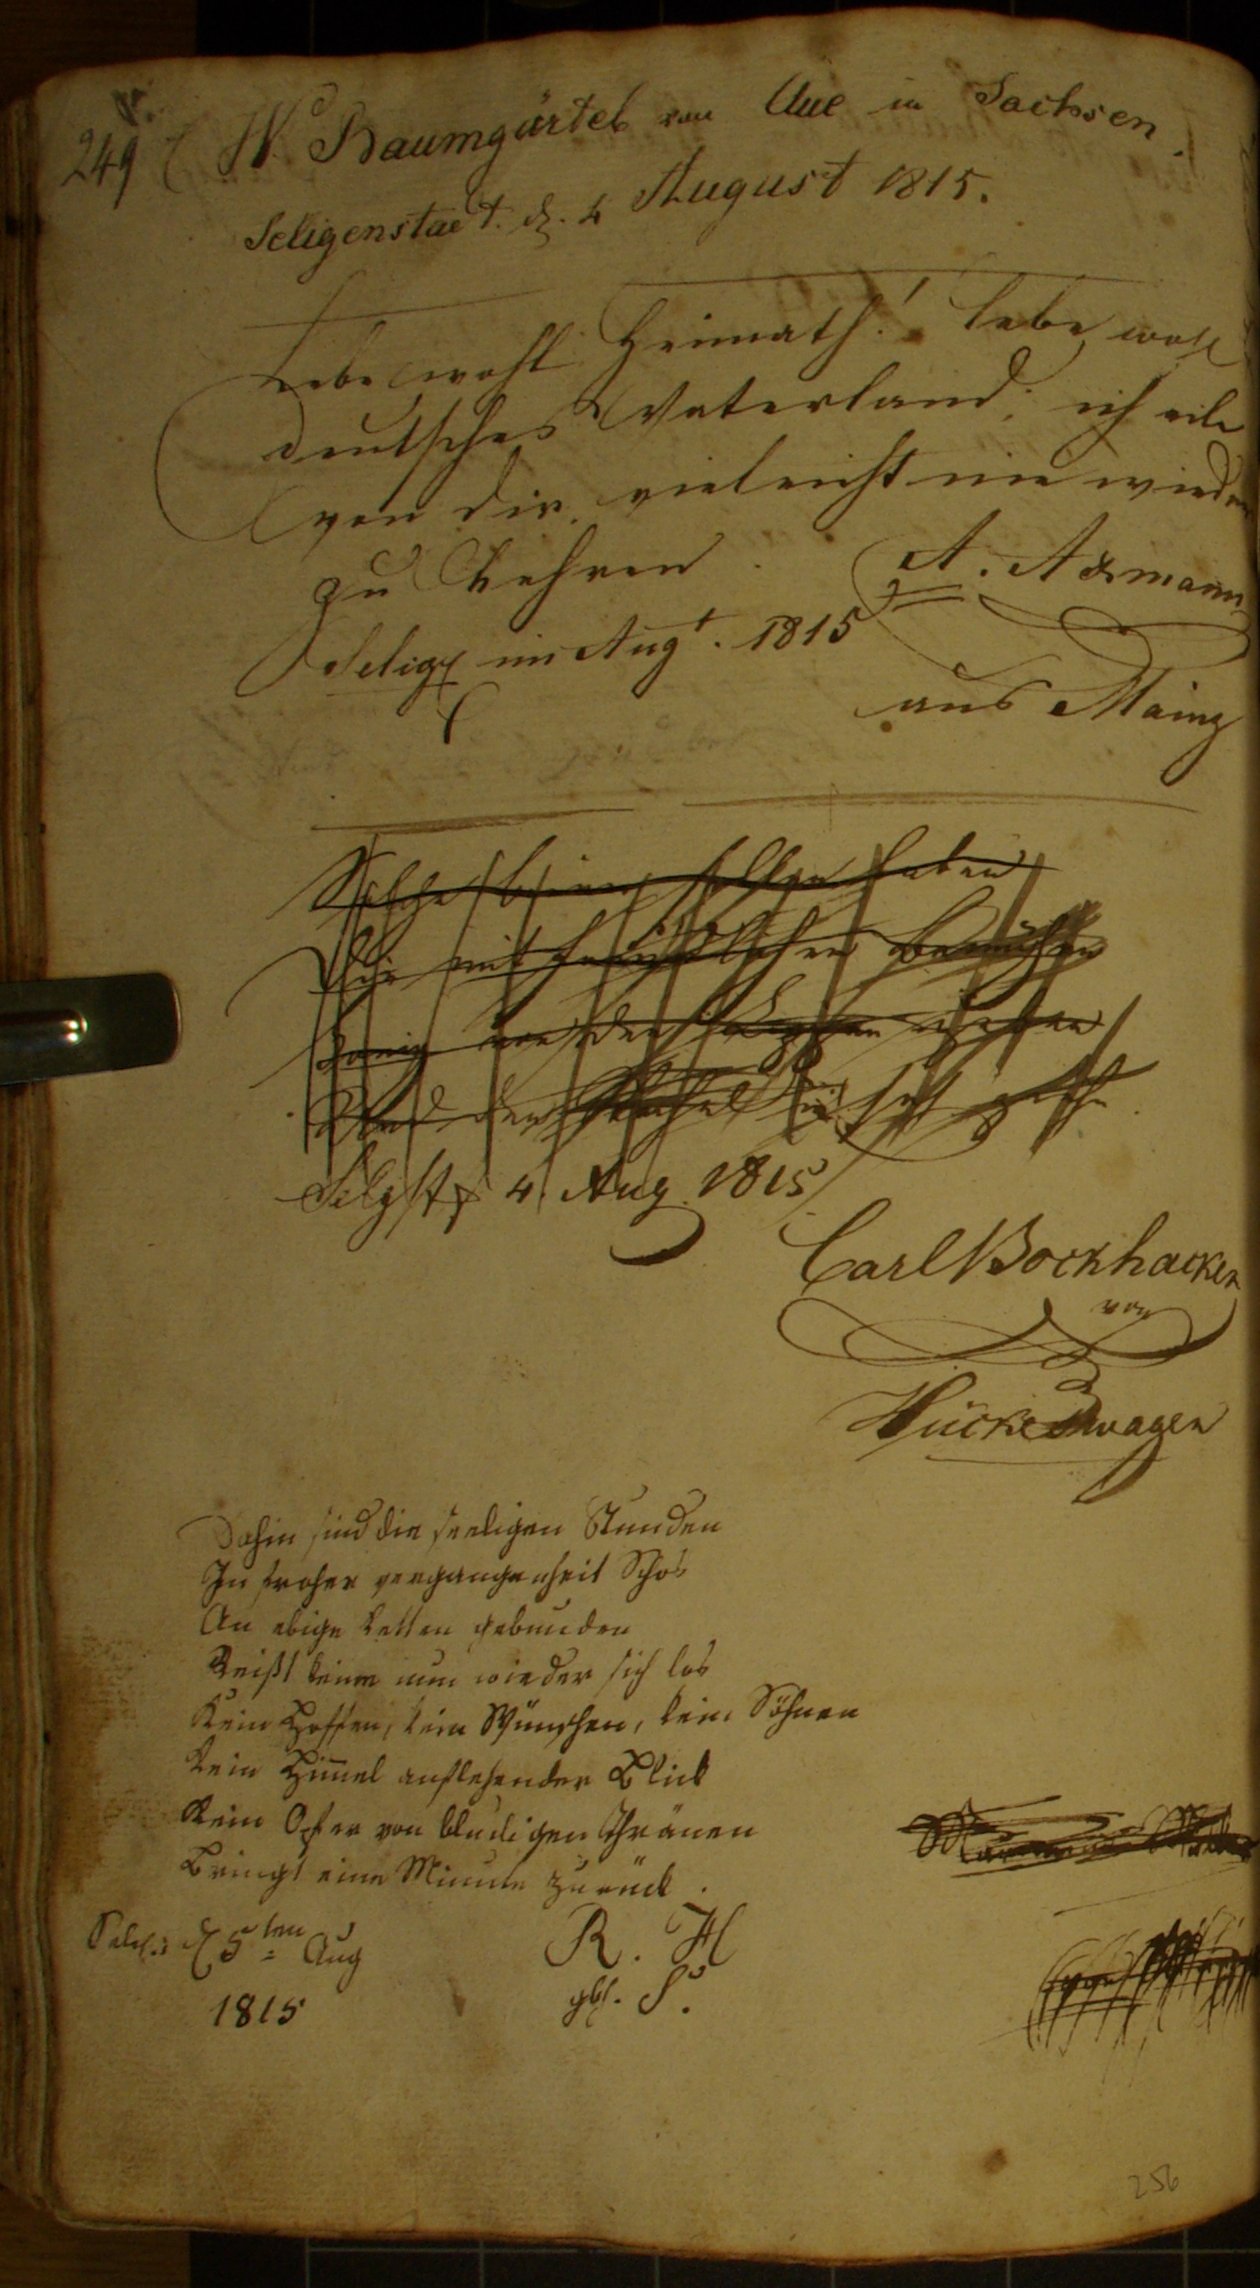 249
W. Baumgärtel von Aue in Sachsen.
Seligenstadt. d. 4 August 1815.
Lebe wohl Heimath! Lebe wohl
deutsches Vaterland; ich eile
von dir, vieleicht nie wieder
zu kehren.
A. Axmann
Selig im Augt. 1815
aus Mainz
sollten haben
Die mit
und der
Selgst d 4 Aug 1815
Carl Bockhacker
von
Hückeswagen
Dahin sind die seeligen Stunden
In froher vergangenheit Schos
An ebige ketten gebunden
Reißt keine nun wieder sich los
Kein Hoffen, kein Wünschen, kein Söhnen
kein Himmel anflehender Blick
Kein Opfer von bludigen Thränen
Bringt eine Minute zurück.
Selgs. d 5ten Aug
1815
R. H
gbl. S.
256